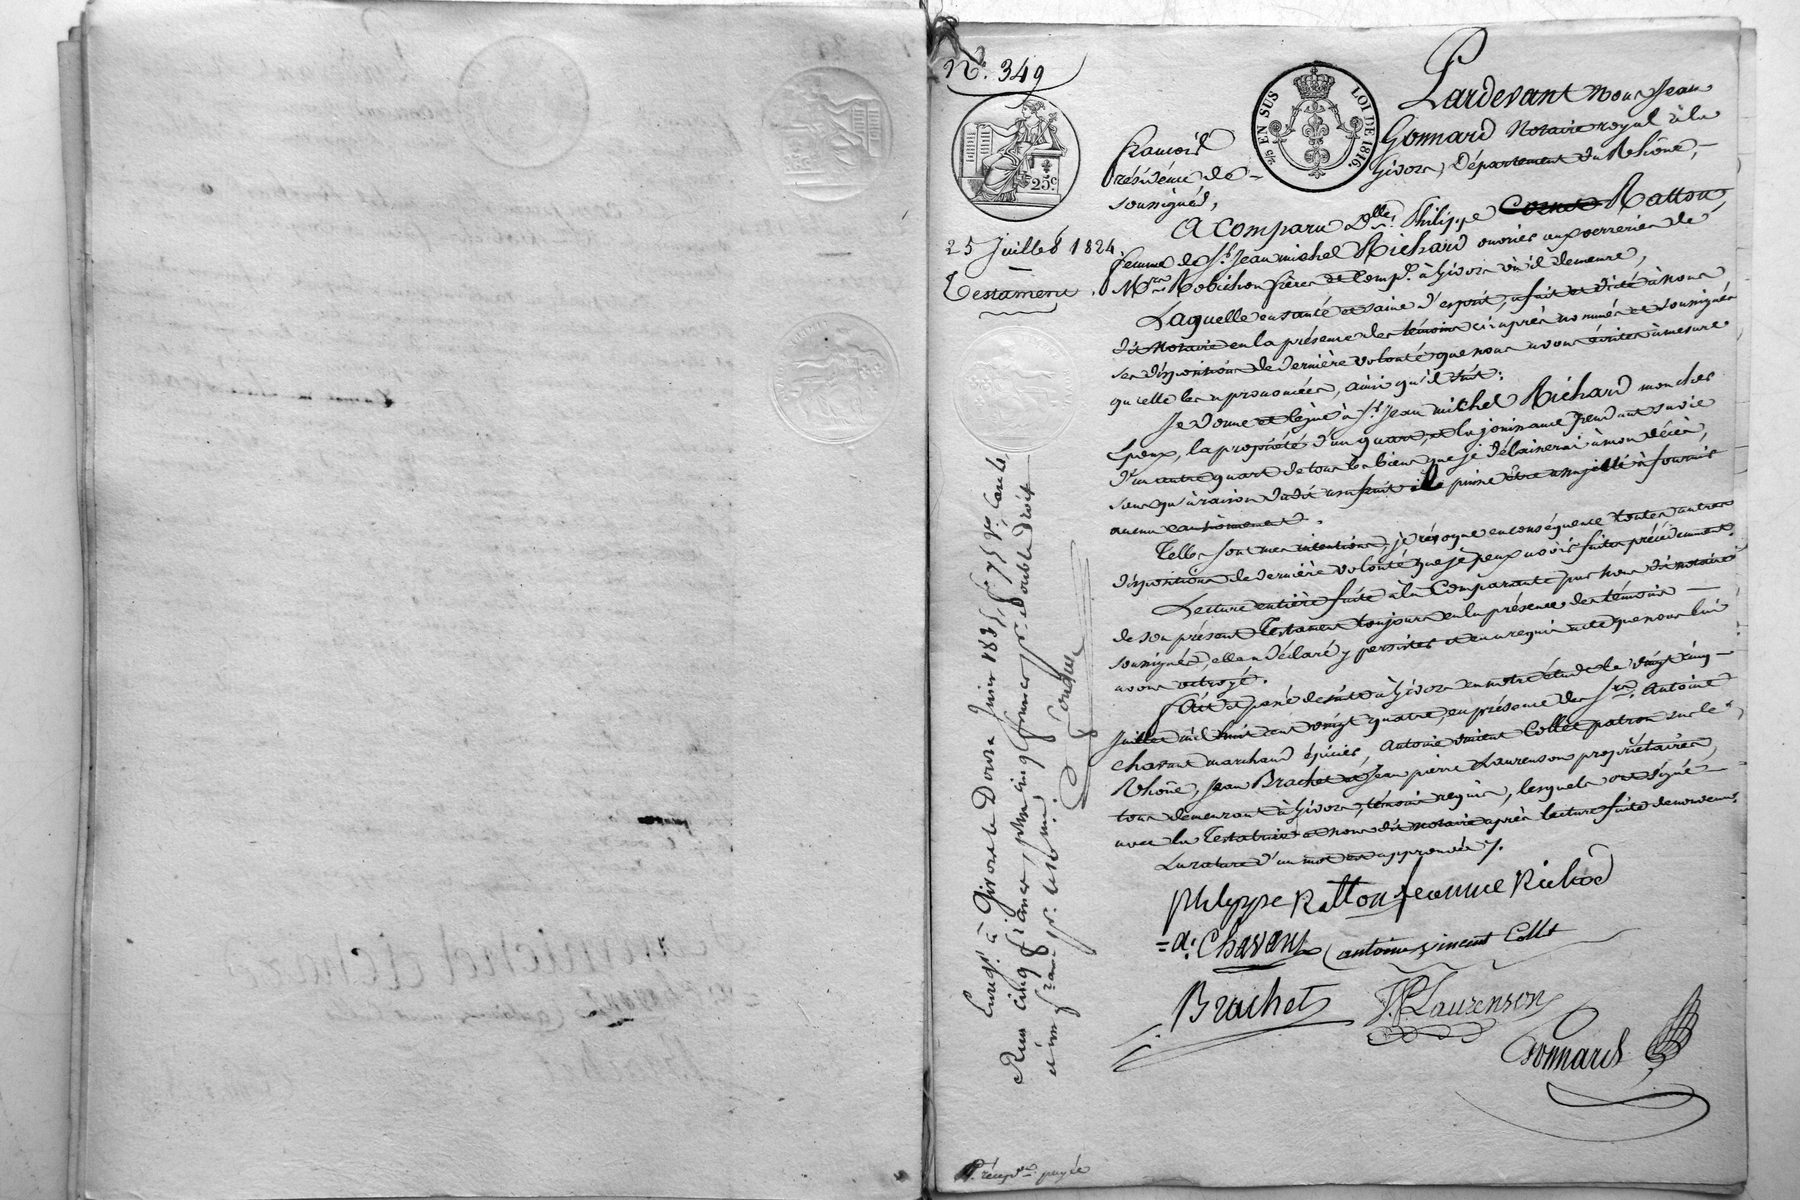 N.º 349
EN SUS
LOI DE 1816.
25 c
25 Juillet 1824.
Testament
Pardevant Nous Jean
François Gonnard Notaire royal à la
résidence de Givors, Département du Rhône,
soussigné,
A Comparu D.lle Philippe Ratton,
femme de S.r Jean michel Richard ouvrier aux verreries de
M.rs Robichon frères et Comp.e à Givors où il demeure,
Laquelle en santé et saine d'esprit, a fait et dicté à nous
dit Notaire en la présence des témoins ci-après nommés et soussignés
ses dispositions de dernière volonté que nous avons écrites à mesure
qu'elle les a prononcées, ainsi qu'il suit:
Je donne et lègue à S.r Jean michel Richard mon cher
Epoux, la propriété d'un quart, et la jouissance pendant sa vie
d'un autre quart de tous les biens que je délaisserai à mon décès,
sans qu'à raison dudit usufruit il puisse être assujetti à fournir
aucun cautionnement.
Telles sont mes intentions, je révoque en conséquence toutes autres
dispositions de dernière volonté que je peux avoir faites précédemment.
Lecture entière faite à la Comparante par nous dit notaire
de son présent Testament toujours en la présence des témoins
soussignés, elle a déclaré y persister et en a requis acte que nous lui
avons octroyé.
Fait et passé de suite à Givors en notre étude le vingt cinq
Juillet mil huit cent vingt quatre, en présence des S.rs Antoine
Chavant marchand épicier, Antoine vincent Collet patron sur le
Rhône, Jean Brachet et Jean pierre Laurenson propriétaires,
tous demeurant à Givors, témoins requis, lesquels ont signé
avec la Testatrice et nous dit notaire après lecture faite de nouveau.
La rature d'un mot est approuvée ./.
Philyppe Ratton feamme Richard
= a. Chavant antoine vincent Collet
Brachet J.P. Laurenson
Gonnard
Enreg.é à Givors le Douze Juin 1835, f.º 75 V.º Case
Reçu cinq francs, plus cinq francs pour double droit
et un franc